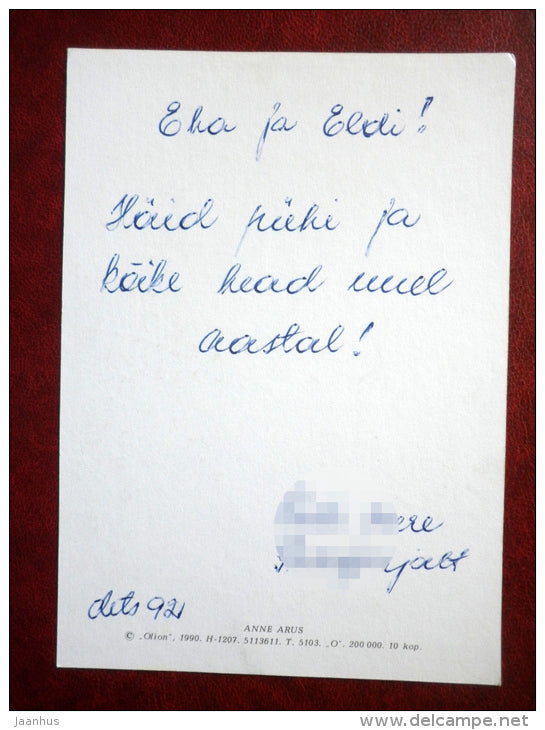 Eha ja Eldi!
Häid pühi ja
kõike head uuel
aastal!
dets 92
ANNE ARUS
© „Olion“, 1990. H-1207. 5113611. T. 5103. „O“. 200 000. 10 kop.
jaanhus
delcampe.net